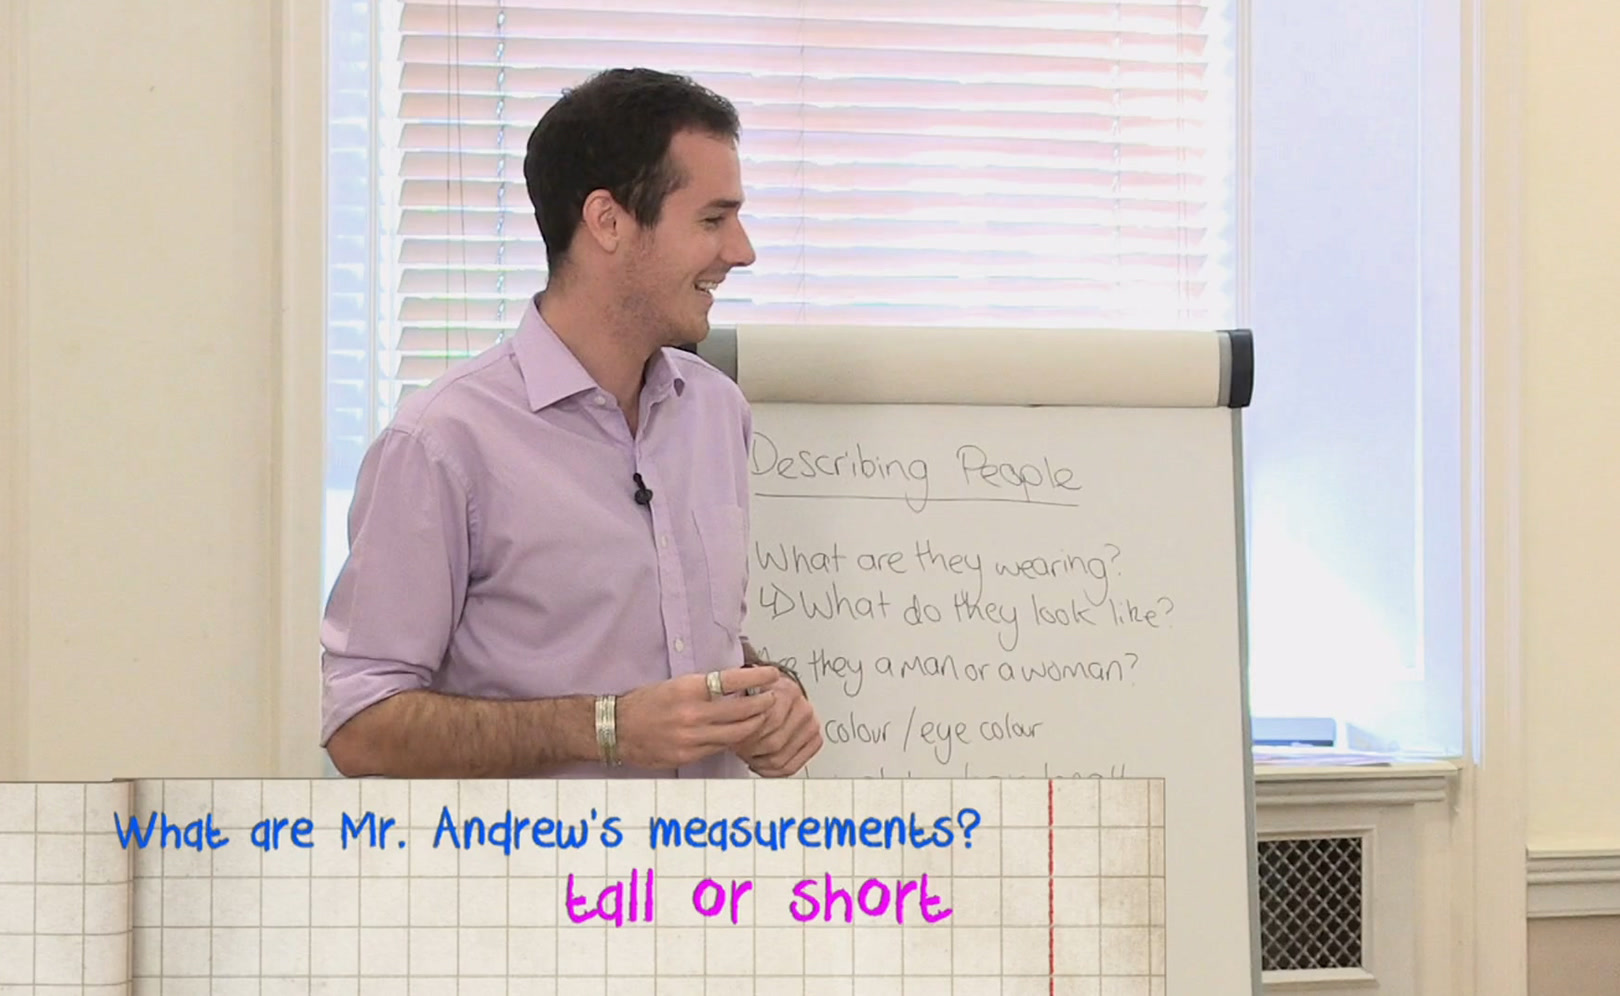 Describing People
What are they wearing?
What do they look like?
they a man or a woman?
colour / eye colour
What are Mr. Andrew's measurements?
tall or short